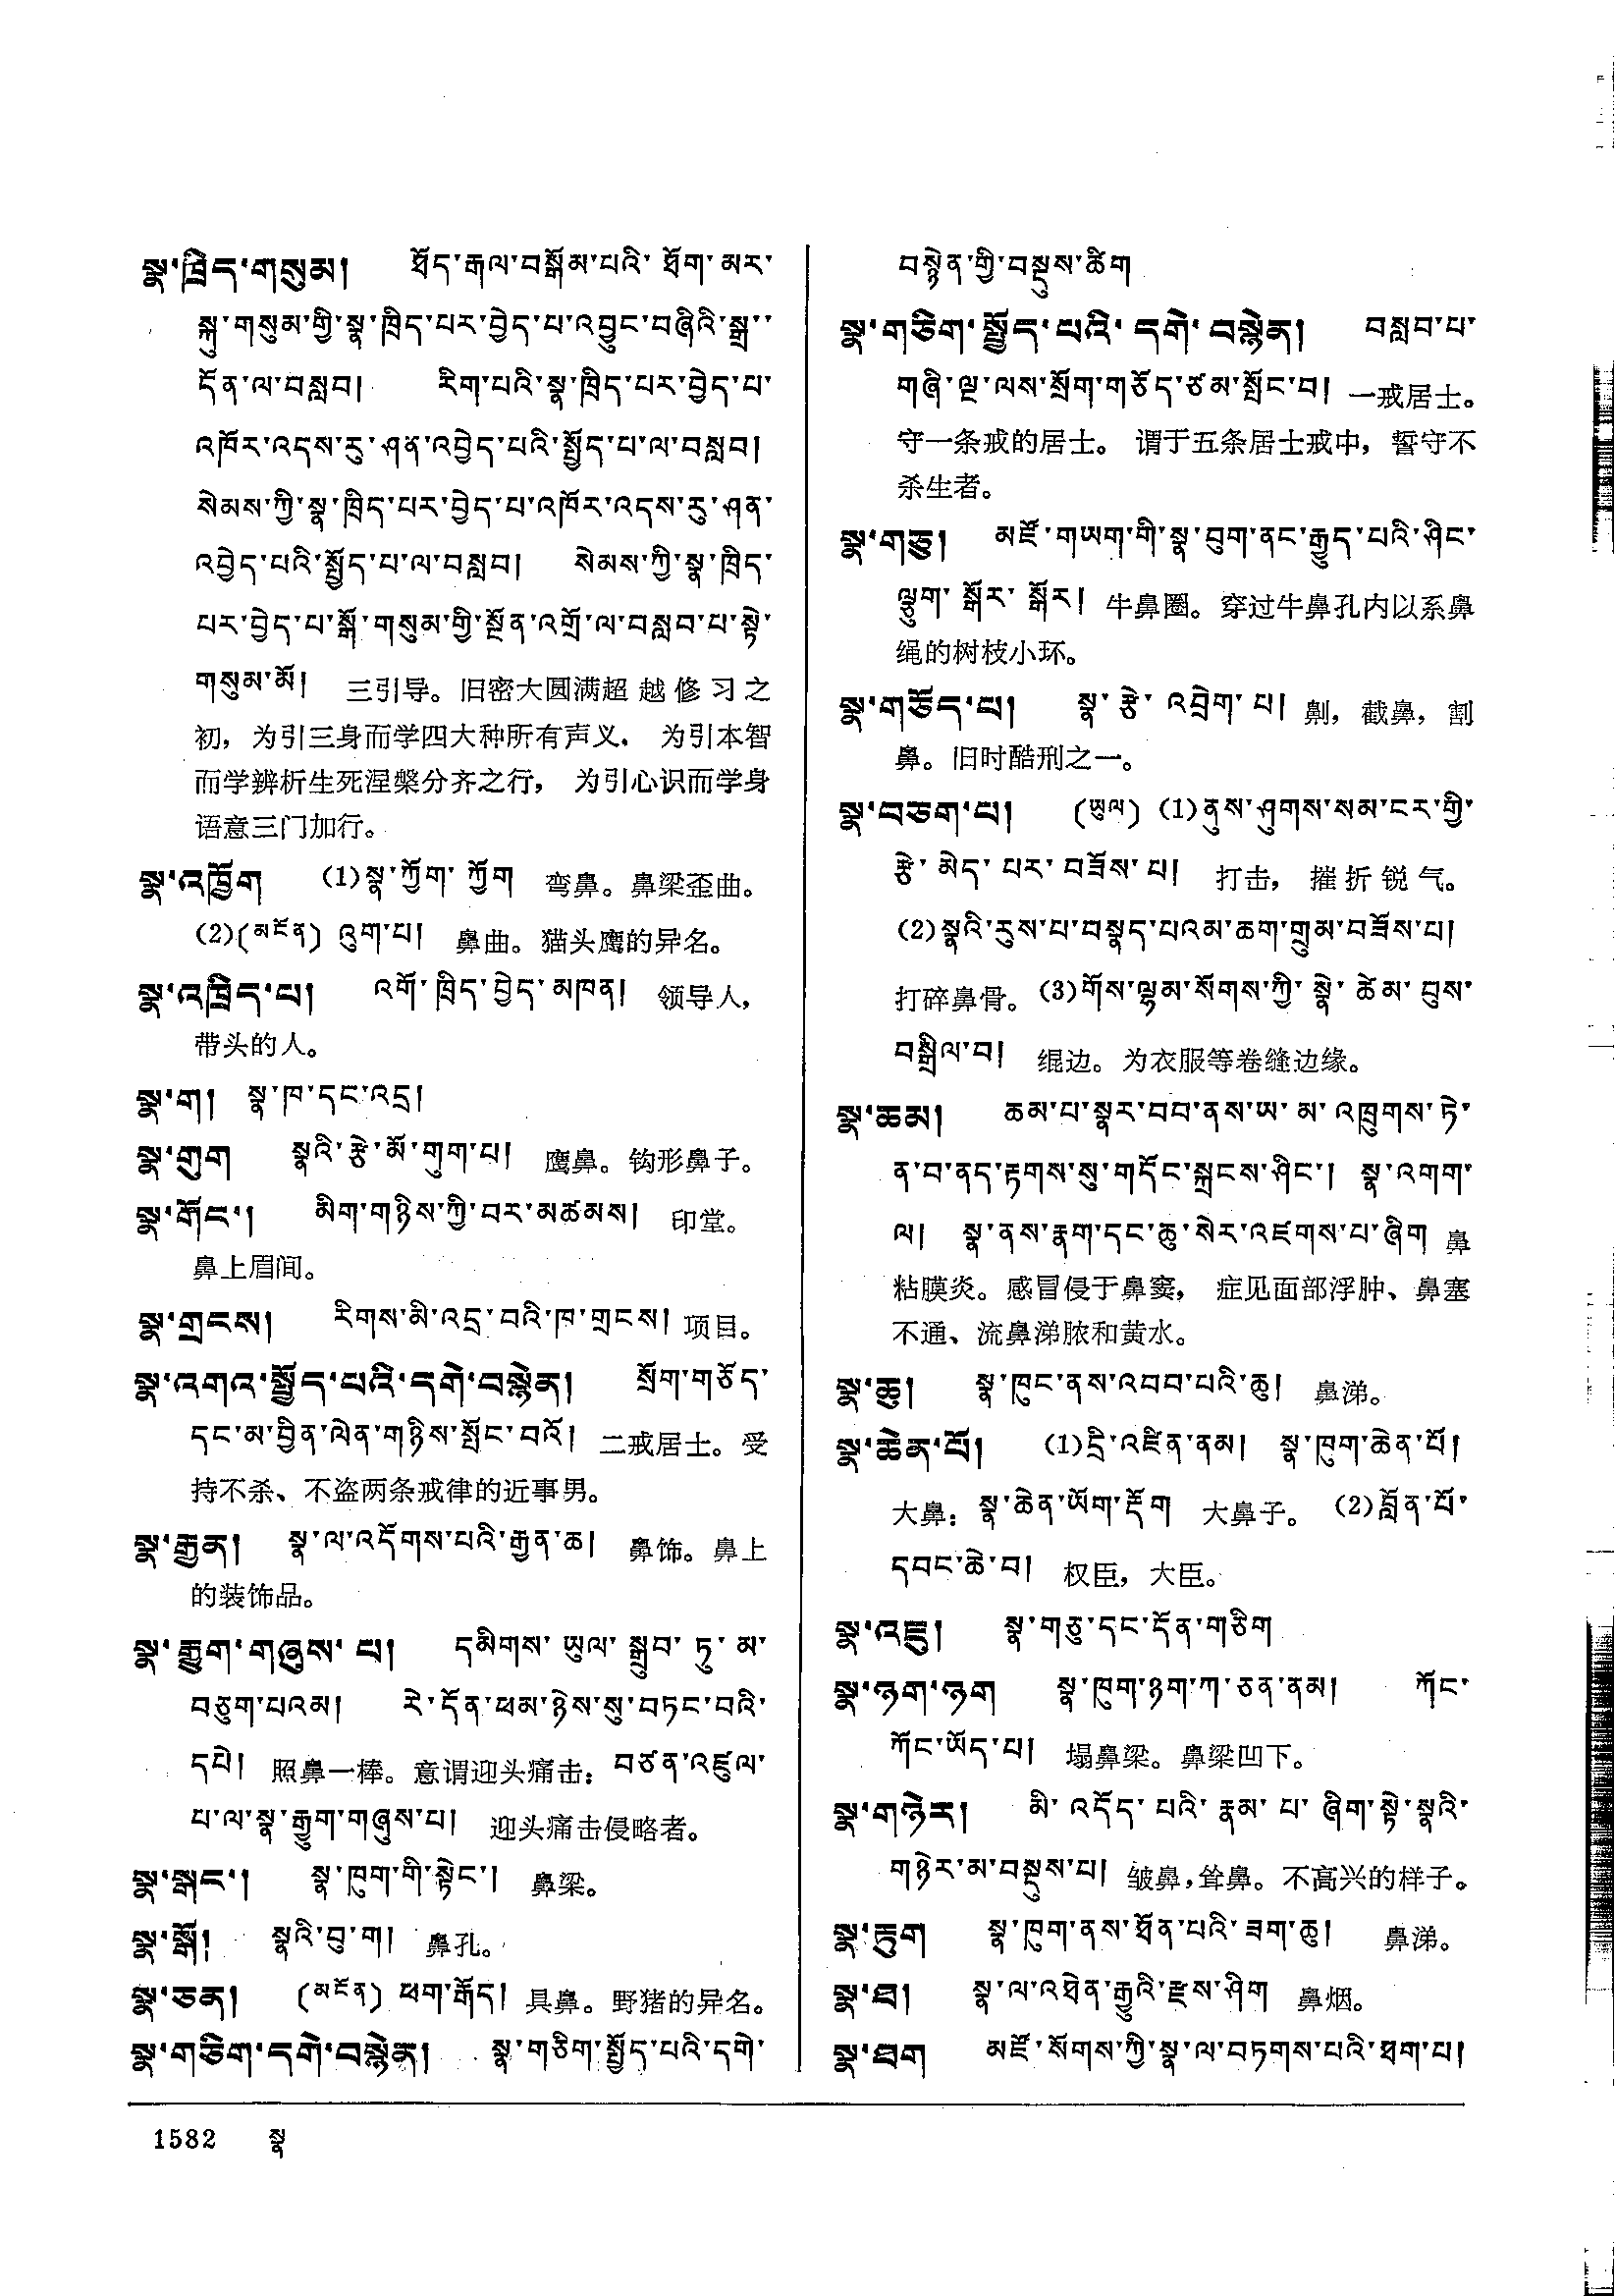 སྣ་ཁྲིད་གསུམ། ཐོད་རྒལ་བསྒོམ་པའི་ ཐོག་ མར་
སྐུ་གསུམ་གྱི་སྣ་ཁྲིད་པར་བྱེད་པ་འབྱུང་བཞིའི་སྒྲ་
དོན་ལ་བསླབ། རིག་པའི་སྣ་ཁྲིད་པར་བྱེད་པ་
འཁོར་འདས་རུ་ཤན་འབྱེད་པའི་སྤྱོད་པ་ལ་བསླབ།
སེམས་ཀྱི་སྣ་ཁྲིད་པར་བྱེད་པ་འཁོར་འདས་རུ་ཤན་
འབྱེད་པའི་སྤྱོད་པ་ལ་བསླབ། སེམས་ཀྱི་སྣ་ཁྲིད་
པར་བྱེད་པ་སྒོ་གསུམ་གྱི་སྔོན་འགྲོ་ལ་བསླབ་པ་སྟེ་
གསུམ་མོ། 三引导。旧密大圆满超越修习之
初，为引三身而学四大种所有声义． 为引本智
而学辨析生死涅槃分齐之行， 为引心识而学身
语意三门加行。
སྣ་འཁྱོག (1)སྣ་ཀྱོག་ ཀྱོག 弯鼻。鼻梁歪曲。
(2)(མངོན) འུག་པ། 鼻曲。猫头鹰的异名。
སྣ་འཁྲིད་པ། འགོ་ཁྲིད་བྱེད་མཁན། 领导人，
带头的人。
སྣ་ག། སྣ་ཁ་དང་འདྲ།
སྣ་གུག སྣའི་རྩེ་མོ་གུག་པ། 鹰鼻。钩形鼻子。
སྣ་གོང་། མིག་གཉིས་ཀྱི་བར་མཚམས། 印堂。
鼻上眉间。
སྣ་གྲངས། རིགས་མི་འདྲ་བའི་ཁ་གྲངས། 项目。
སྣ་འགའ་སྤྱོད་པའི་དགེ་བསྙེན། སྲོག་གཅོད་
དང་མ་བྱིན་ལེན་གཉིས་སྤོང་བའོ། 二戒居士。受
持不杀、不盗两条戒律的近事男。
སྣ་རྒྱན། སྣ་ལ་འདོགས་པའི་རྒྱན་ཆ། 鼻饰。鼻上
的装饰品。
སྣ་རྒྱུག་གཞུས་ པ། དམིགས་ ཡུལ་ སྒྲུབ་ ཏུ་ མ་
བཅུག་པའམ། རེ་དོན་ཕམ་ཉེས་སུ་བཏང་བའི་
དཔེ། 照鼻一棒。意谓迎头痛击：བཙན་འཛུལ་
པ་ལ་སྣ་རྒྱུག་གཞུས་པ། 迎头痛击侵略者。
སྣ་སྒང་། སྣ་ཁུག་གི་སྟེང་། 鼻梁。
སྣ་སྒོ། སྣའི་བུ་ག། 鼻孔。
སྣ་ཅན། (མངོན) ཕག་རྒོད། 具鼻。野猪的异名。
སྣ་གཅིག་དགེ་བསྙེན། སྣ་གཅིག་སྤྱོད་པའི་དགེ་
བསྙེན་གྱི་བསྡུས་ཚིག
སྣ་གཅིག་སྤྱོད་པའི་ དགེ་ བསྙེན། བསླབ་པ་
གཞི་ལྔ་ལས་སྲོག་གཅོད་ཙམ་སྤོང་བ། 一戒居士。
守一条戒的居士。 谓于五条居士戒中，誓守不
杀生者。
སྣ་གཅུ། མཛོ་གཡག་གི་སྣ་བུག་ནང་རྒྱུད་པའི་ཤིང་
ལྕུག་ སྒོར་ སྒོར། 牛鼻圈。穿过牛鼻孔内以系鼻
绳的树枝小环。
སྣ་གཅོད་པ། སྣ་ རྩེ་ འབྲེག་ པ། 劓，截鼻，割
鼻。旧时酷刑之一。
སྣ་བཅག་པ། (ཡུལ) (1)ནུས་ཤུགས་སམ་ངར་གྱི་
རྩེ་ མེད་ པར་ བཟོས་ པ། 打击， 摧折锐气。
(2)སྣའི་རུས་པ་བསྣད་པའམ་ཆག་གྲུམ་བཟོས་པ།
打碎鼻骨。(3)གོས་ལྷམ་སོགས་ཀྱི་ སྣེ་ ཚེམ་ བུས་
བསྒྲིལ་བ། 绲边。为衣服等卷缝边缘。
སྣ་ཆམ། ཆམ་པ་སྣར་བབ་ནས་ཡ་ མ་ འཁྲུགས་ ཏེ་
ན་བ་ནད་རྟགས་སུ་གདོང་སྐྲངས་ཤིང་། སྣ་འགག་
ལ། སྣ་ནས་རྣག་དང་ཆུ་སེར་འཛགས་པ་ཞིག 鼻
粘膜炎。感冒侵于鼻窦， 症见面部浮肿、鼻塞
不通、流鼻涕脓和黄水。
སྣ་ཆུ། སྣ་ཁུང་ནས་འབབ་པའི་ཆུ། 鼻涕。
སྣ་ཆེན་པོ། (1)དྲི་འཛིན་ནམ། སྣ་ཁུག་ཆེན་པོ།
大鼻：སྣ་ཆེན་ཡོག་རྡོག 大鼻子。 (2)བློན་པོ་
དབང་ཆེ་བ། 权臣，大臣。
སྣ་འཇུ། སྣ་གཅུ་དང་དོན་གཅིག
སྣ་ཉག་ཉག སྣ་ཁུག་ཉག་ཀ་ཅན་ནམ། ཀོང་
ཀོང་ཡོད་པ། 塌鼻梁。鼻梁凹下。
སྣ་གཉེར། མི་ འདོད་ པའི་ རྣམ་ པ་ ཞིག་སྟེ་སྣའི་
གཉེར་མ་བསྡུས་པ། 皱鼻，耸鼻。不高兴的样子。
སྣ་ཏུག སྣ་ཁུག་ནས་ཐོན་པའི་ཟག་ཆུ། 鼻涕。
སྣ་ཐ། སྣ་ལ་འཐེན་རྒྱུའི་རྫས་ཤིག 鼻烟。
སྣ་ཐག མཛོ་སོགས་ཀྱི་སྣ་ལ་བཏགས་པའི་ཐག་པ།
1582 སྣ